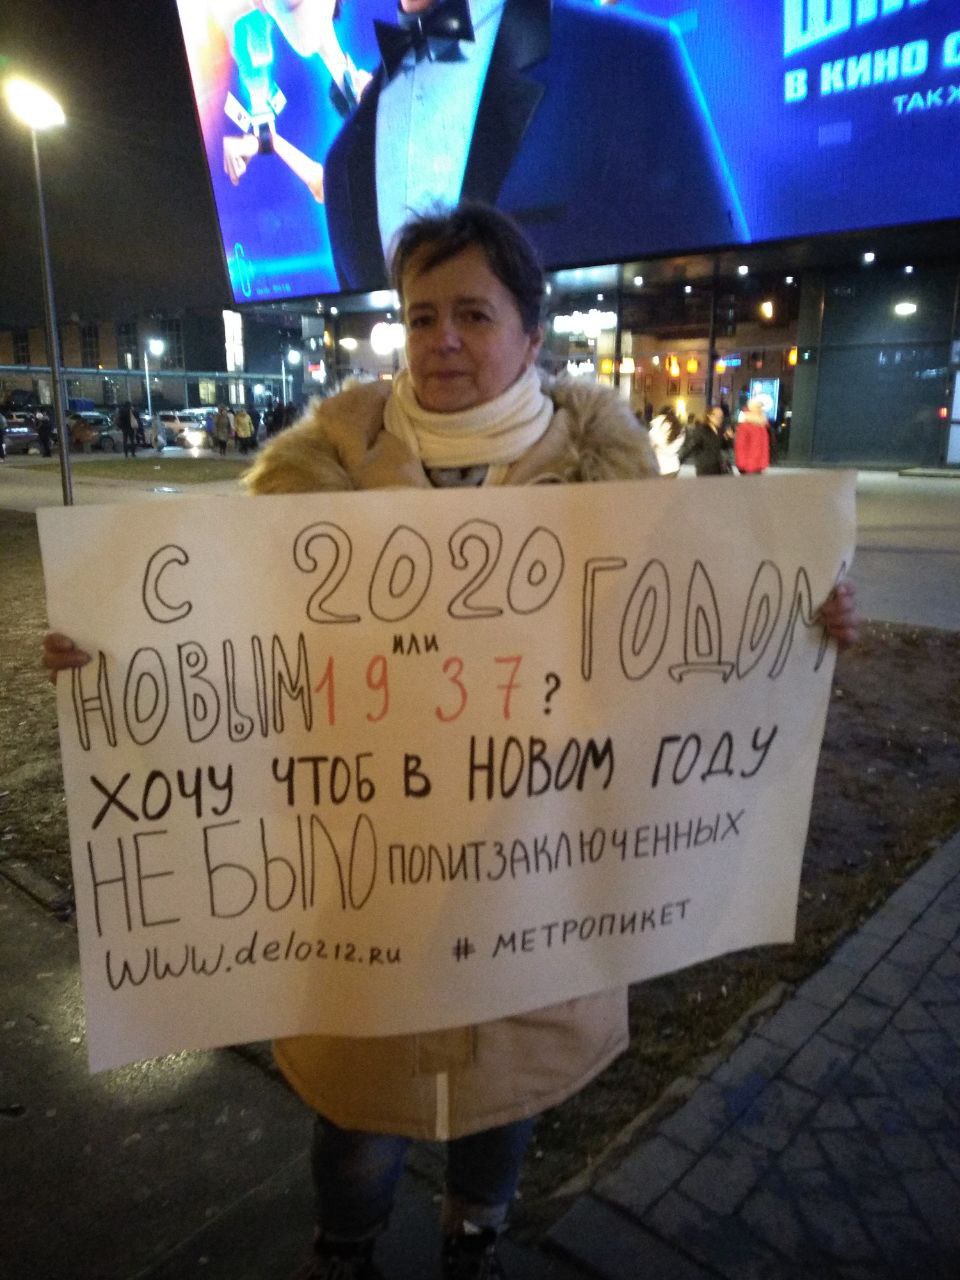 В КИНО С
ТАКЖ
С 2020 ГОДОМ
НОВЫМ ИЛИ
1937?
ХОЧУ ЧТОБ В НОВОМ ГОДУ
НЕ БЫЛО ПОЛИТЗАКЛЮЧЕННЫХ
WWW.delo212.RU # МЕТРОПИКЕТ